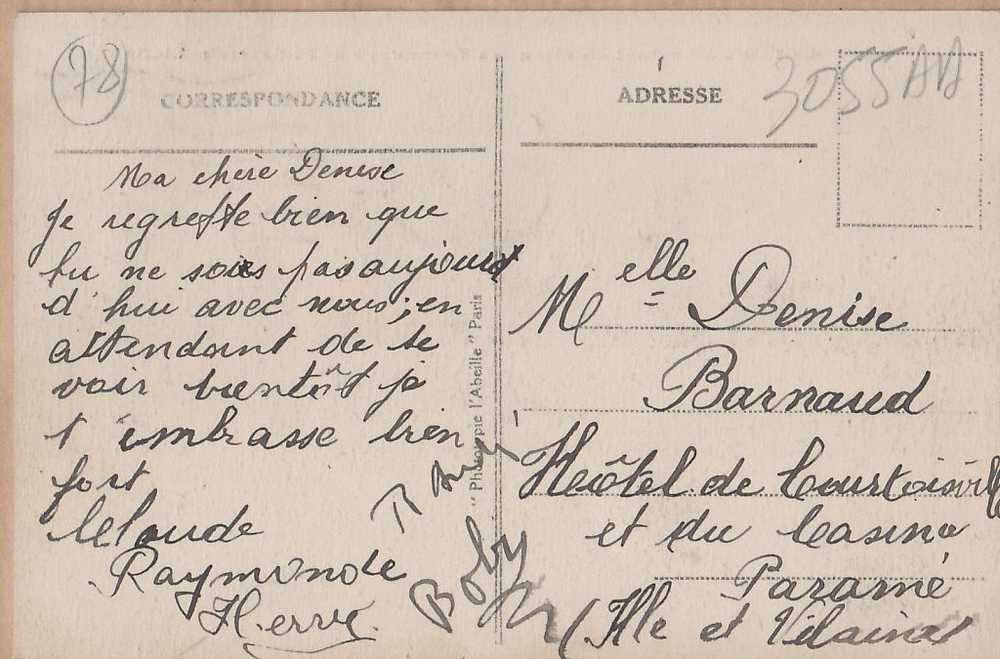 78
CORRESPONDANCE
Ma chère Denise
Je regrette bien que
tu ne sois pas aujourd
d'hui avec nous; en
attendant de se
voir bientôt je
t'embrasse bien
fort
Claude
Raymonde
Hervé
Boby
"Phototypie l'Abeille" Paris
ADRESSE
3055AA
Melle Denise
Barnaud
Hôtel de Courtoisville
et du Casino
Paramé
(Ille et Vilaine)